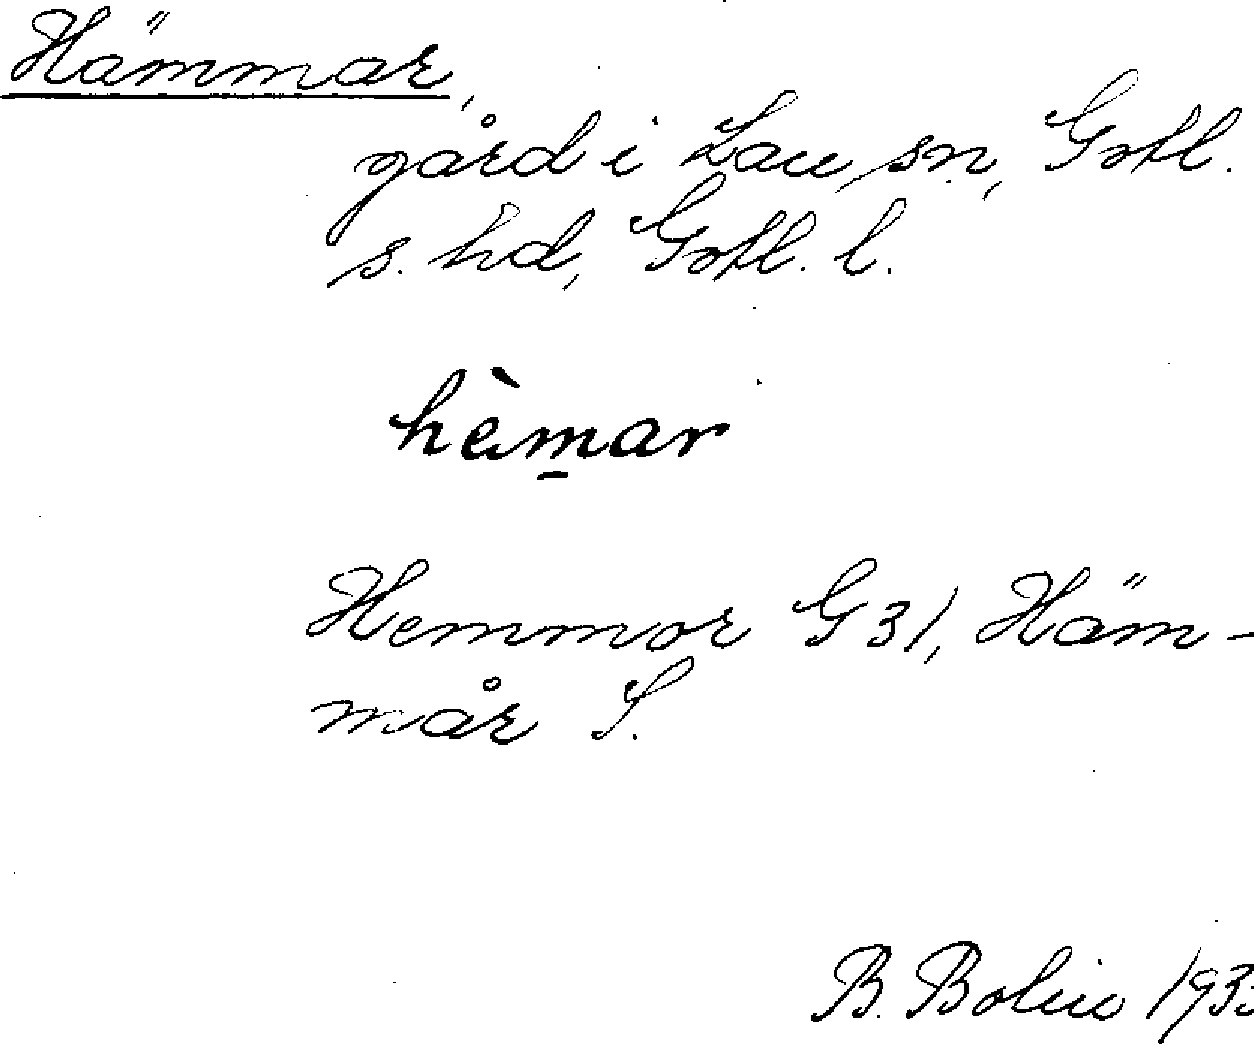 Hämmar,
gård i Lau sn, Gotl.
s. hd, Gotl. l.
hèm̲ar
Hemmor G 31, Häm-
mår S.
B. Bolin 193